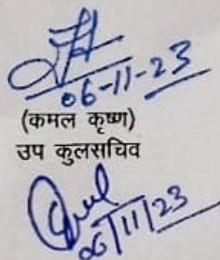 06-11-23
(कमल कृष्ण)
उप कुलसचिव
06/11/23